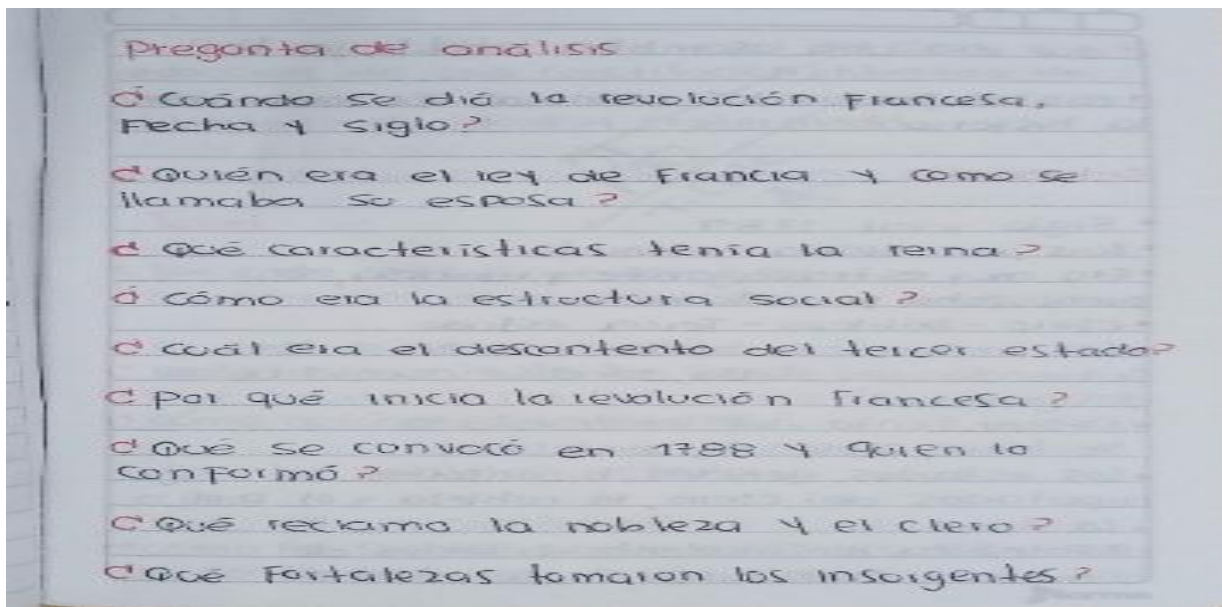 Pregunta de análisis
¿Cuándo se dió la revolución Francesa,
Fecha y siglo?
¿Quién era el rey de Francia y como se
llamaba su esposa?
¿Qué características tenía la reina?
¿Cómo era la estructura social?
¿Cuál era el descontento del tercer estado?
¿Por qué inicia la revolución Francesa?
¿Qué se convocó en 1788 y quien lo
conformó?
¿Qué reclamo la nobleza y el clero?
¿Qué Fortalezas tomaron los insurgentes?